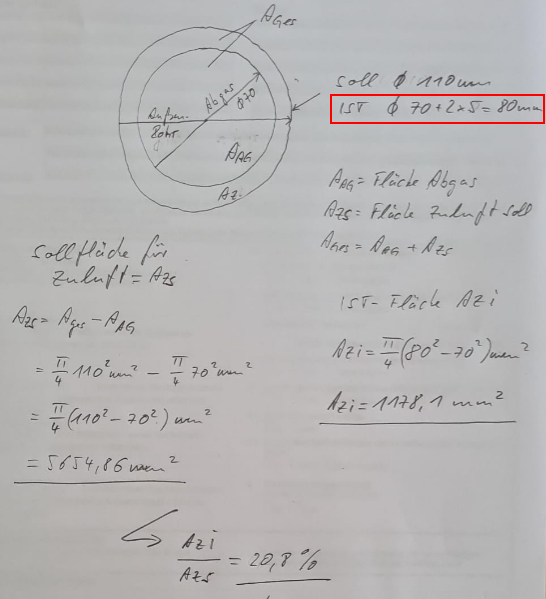 AGes
Abgas
ϕ70
Außen
Rohr
AAG
AZi
soll ϕ 110mm
IST ϕ 70+2×5=80mm
AAG = Fläche Abgas
AZS = Fläche Zuluft soll
AGes = AAG + AZS
Sollfläche für
Zuluft = AZS
AZS = Ages - AAG
= π/4 110² mm² - π/4 70² mm²
= π/4 (110² - 70²) mm²
= 5654,86 mm²
IST-Fläche AZi
AZi = π/4 (80² - 70²) mm²
AZi = 1178,1 mm²
AZi/AZS = 20,8 %